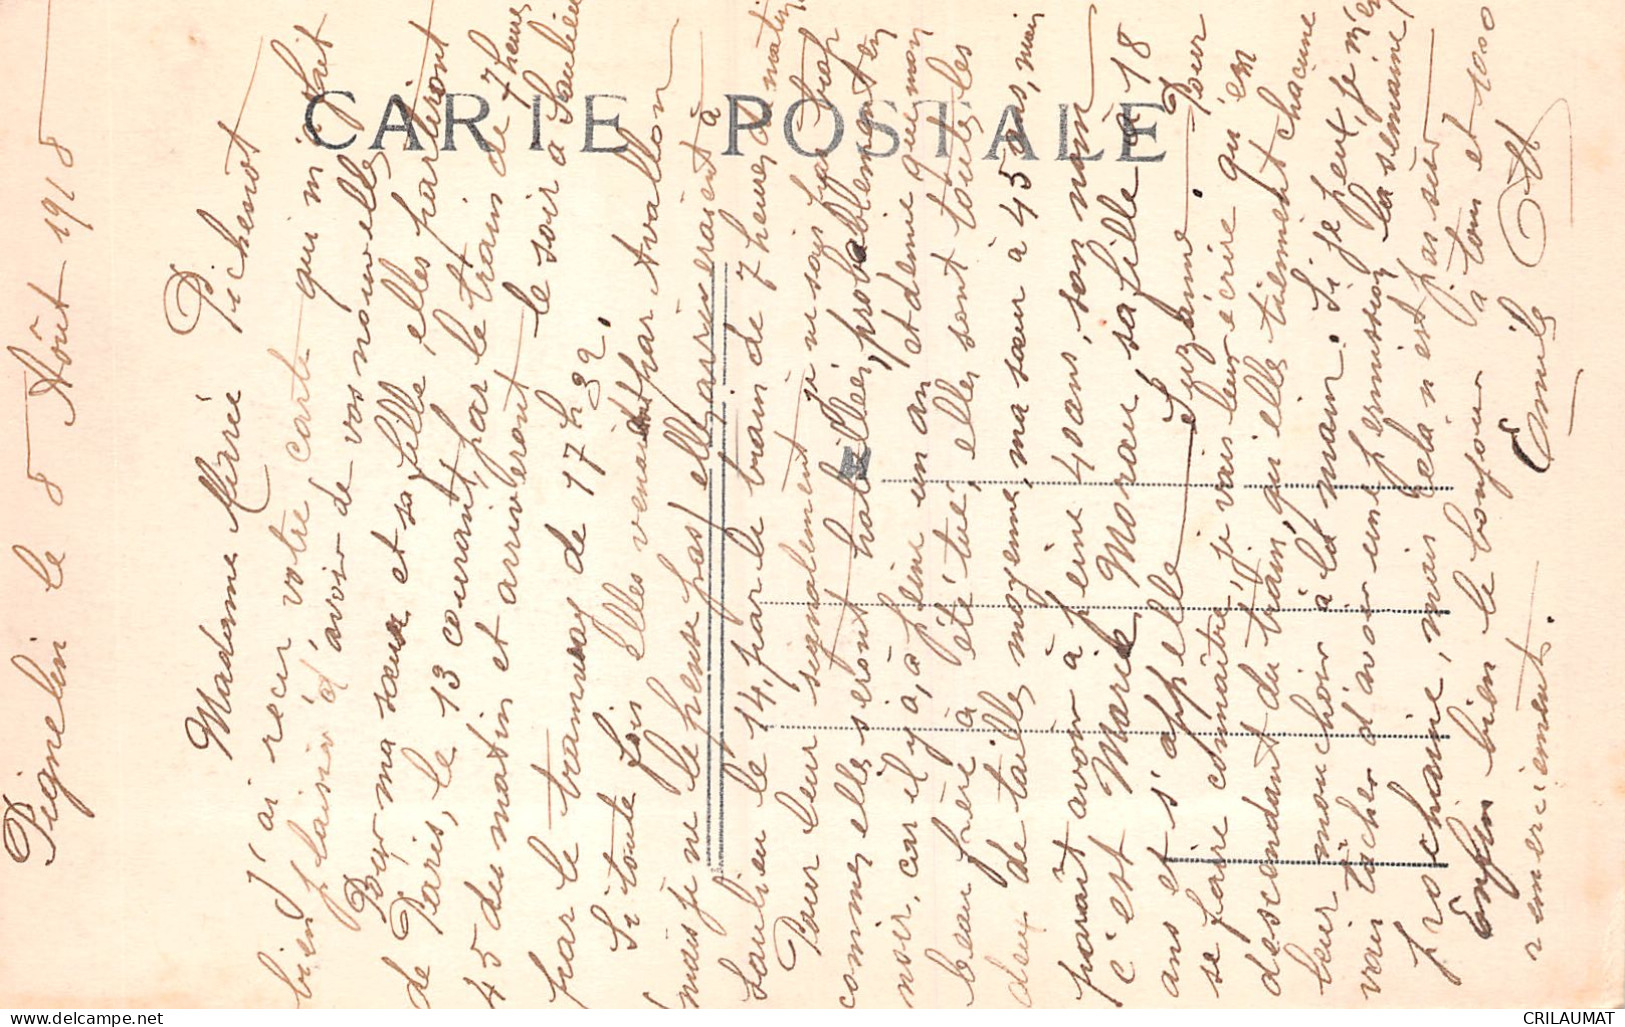 CARTE POSTALE
Pignelin le 8 Août 1918
Madame Méreé Pichenot
J'ai reçu votre carte qui m'a fait
bien plaisir d'avoir de vos nouvelles
Pour ma sœur et sa fille, elles partiront
de Paris, le 13 courant, par le train de 7 heures
45 du matin et arriveront le soir à Saulieu
par le tramway de 17 h 32.
Si toute fois elles venaient par Avallon
mais je ne le pense pas elle arriveraient à
Saulieu le 14, par le train de 7 heures du matin
Pour leur signalement je ne sais pas trop
comme elle seront habillées, probablement en
noir, car il y a, à peine un an et demie que mon
beau frère à été tué, elles sont toutes les
deux de taille moyenne, ma sœur a 45 ans, mais
paraît avoir à peine 40 ans, son nom
c'est Marie Moreau sa fille a 18
ans et s'appelle Suzanne. Pour
se faire connaître, je vais leur écrire qu'en
descendant du train, qu'elle tiennent chacune
leur mouchoir à la main. Si je peux, je
vais tâcher d'avoir une permission la semaine
prochaine, mais cela n'est pas sûr
Enfin bien le bonjour à tous et
remerciements. Emile
CRILAUMAT